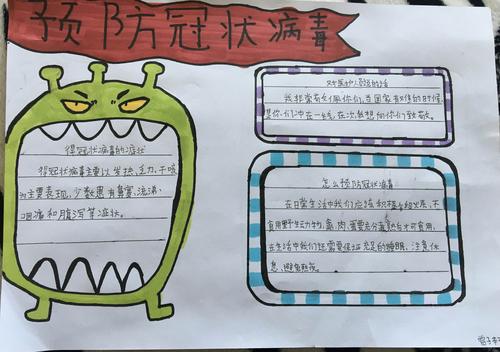 预防冠状病毒
得冠状病毒的症状
得冠状病毒主要以发热、乏力、干咳
为主要表现,少数患有鼻塞、流涕、
咽痛和腹泻等症状。
对医护人员的话
我非常敬佩你们,当国家有难的时候,
是你们冲在一线,在次,我想向你们致敬。
怎么预防冠状病毒
在日常生活中我们应该积极
食用野生动物,禽、肉、蛋要充分煮熟后才可食用,
在生活中我们还需要保证充足的睡眠,注意休
息,避免熬夜。